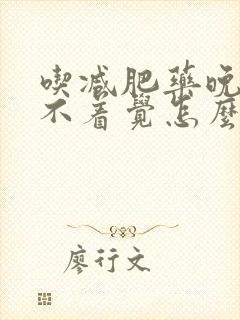 喫减肥藥晚
不着覺怎麼
廖行文